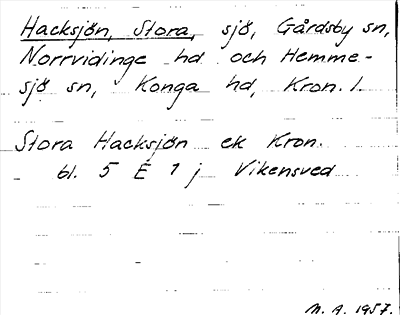 Hacksjön, Stora, sjö, Gårdsby sn,
Norrvidinge hd och Hemme-
sjö sn, Konga hd, Kron. l.
Stora Hacksjön ek Kron.
bl. 5 E 1 j Vikensved
M. A. 1957.